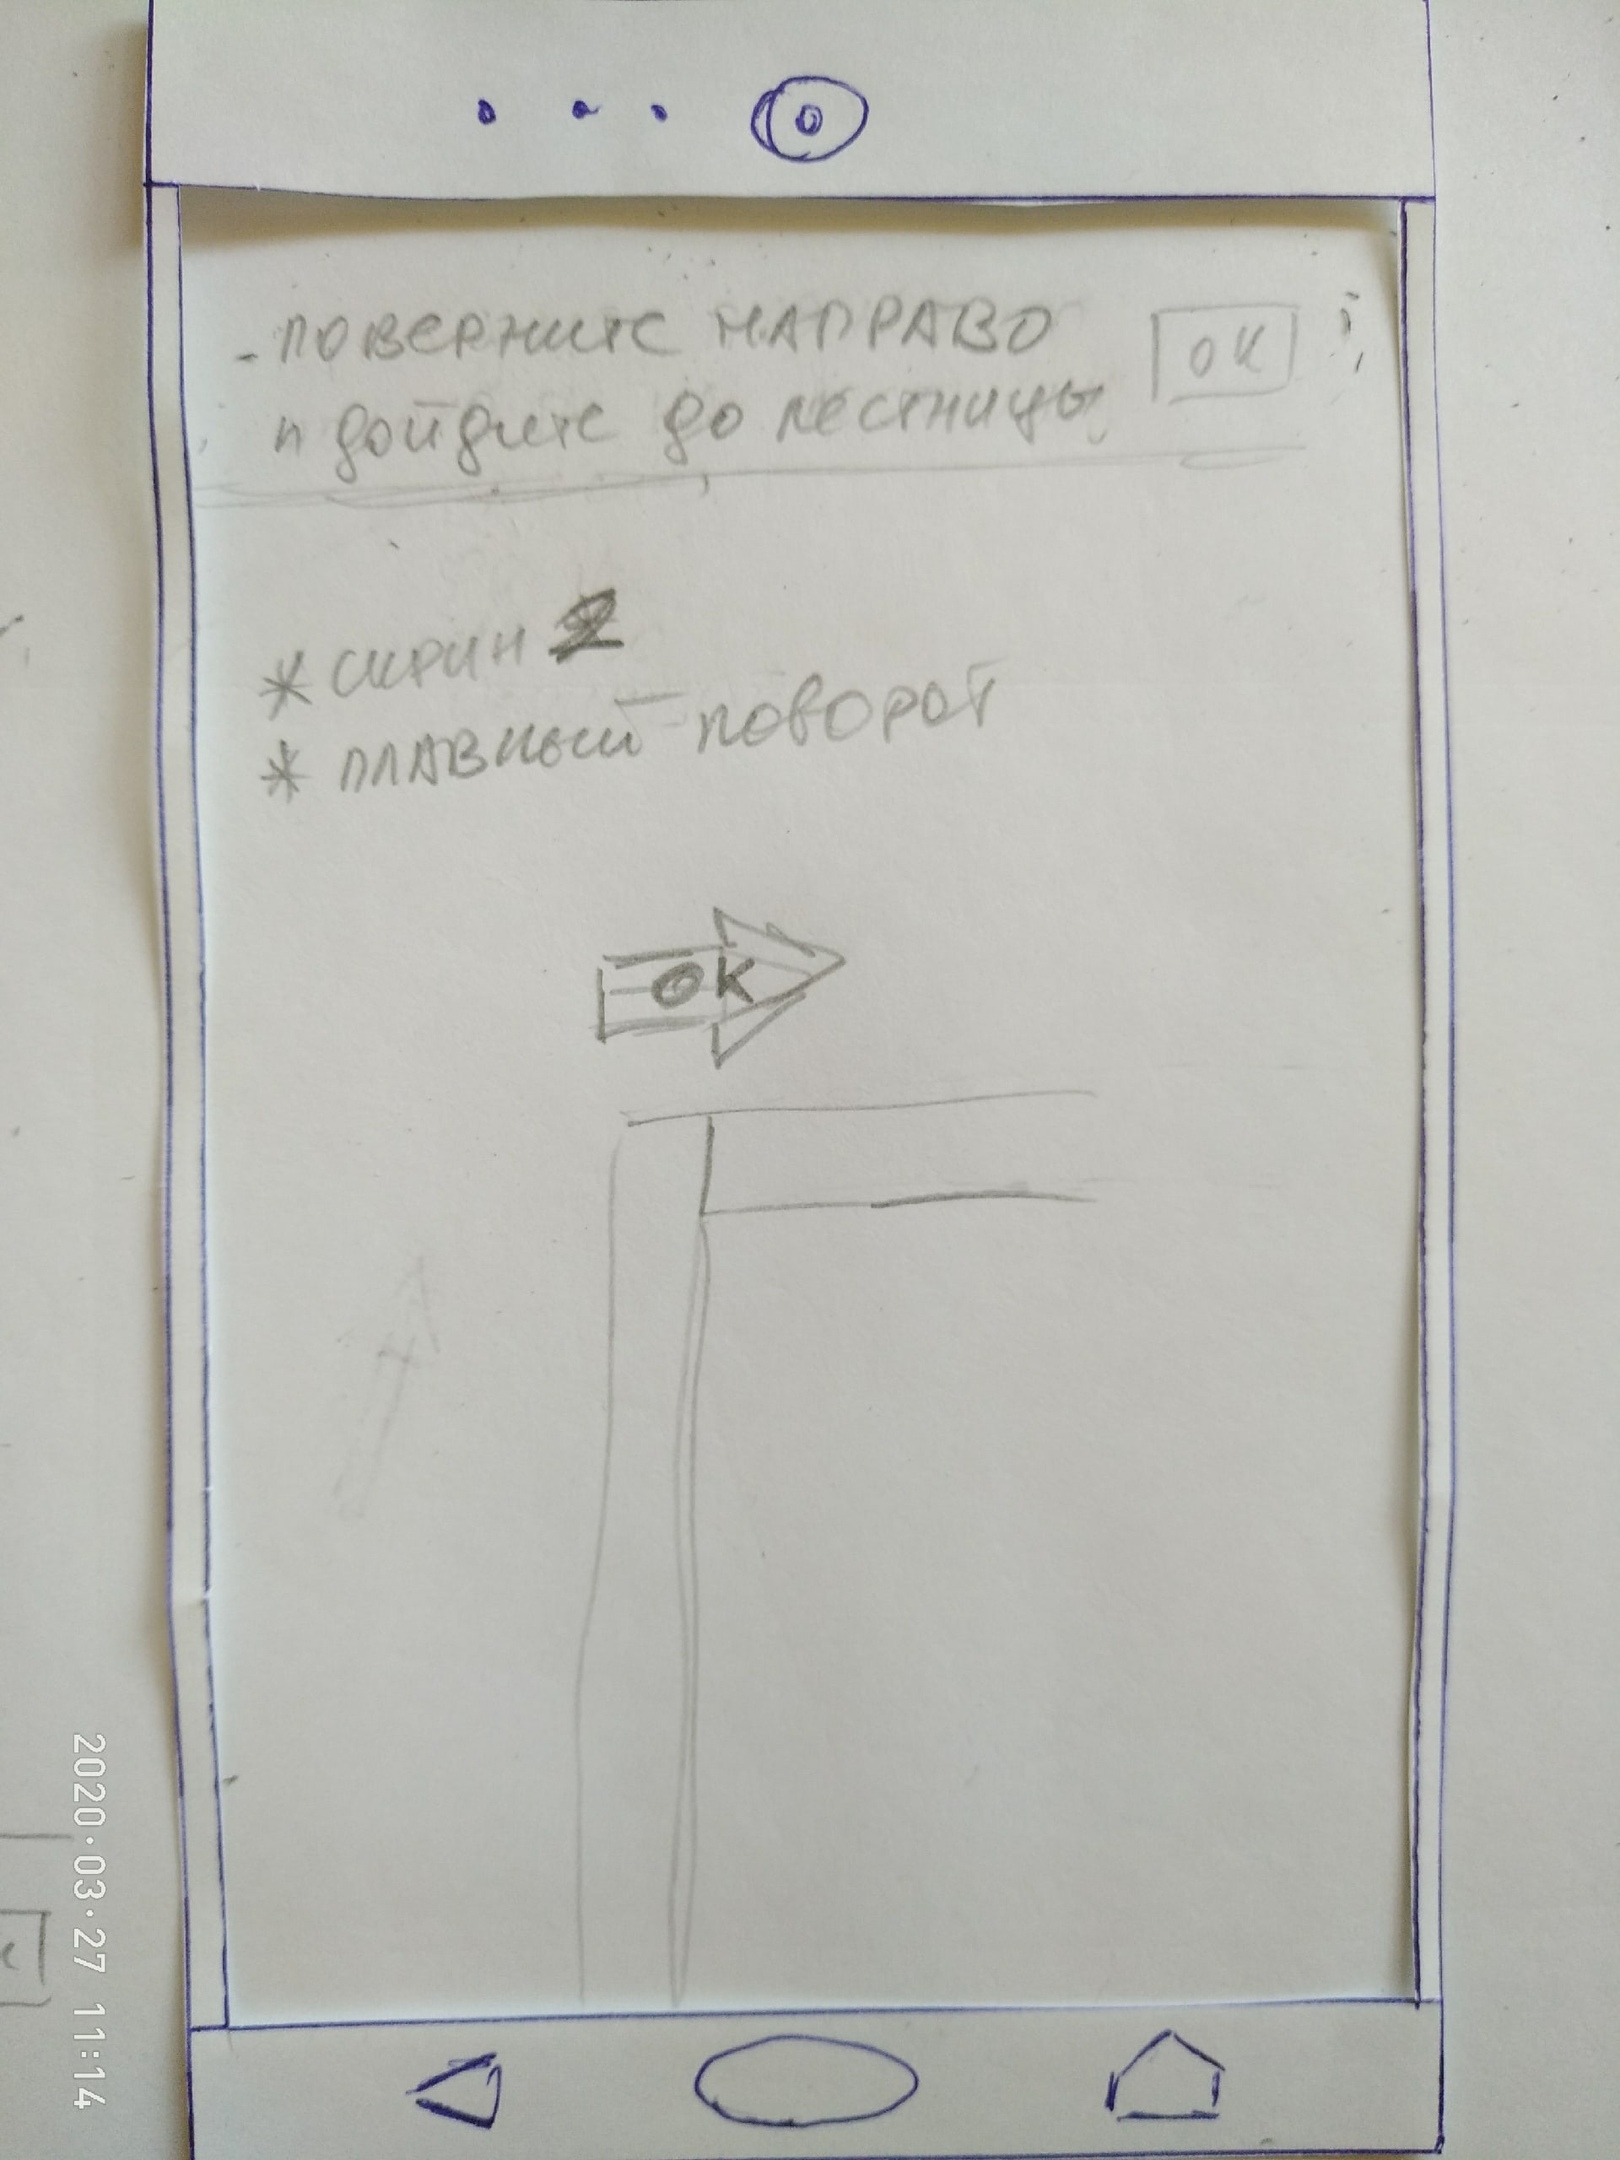 - ПОВЕРНИТЕ НАПРАВО
и дойдите до лестницы
ОК
* скрин 2
* ПЛАВНЫЙ ПОВОРОТ
ОК
2020·03·27 11:14